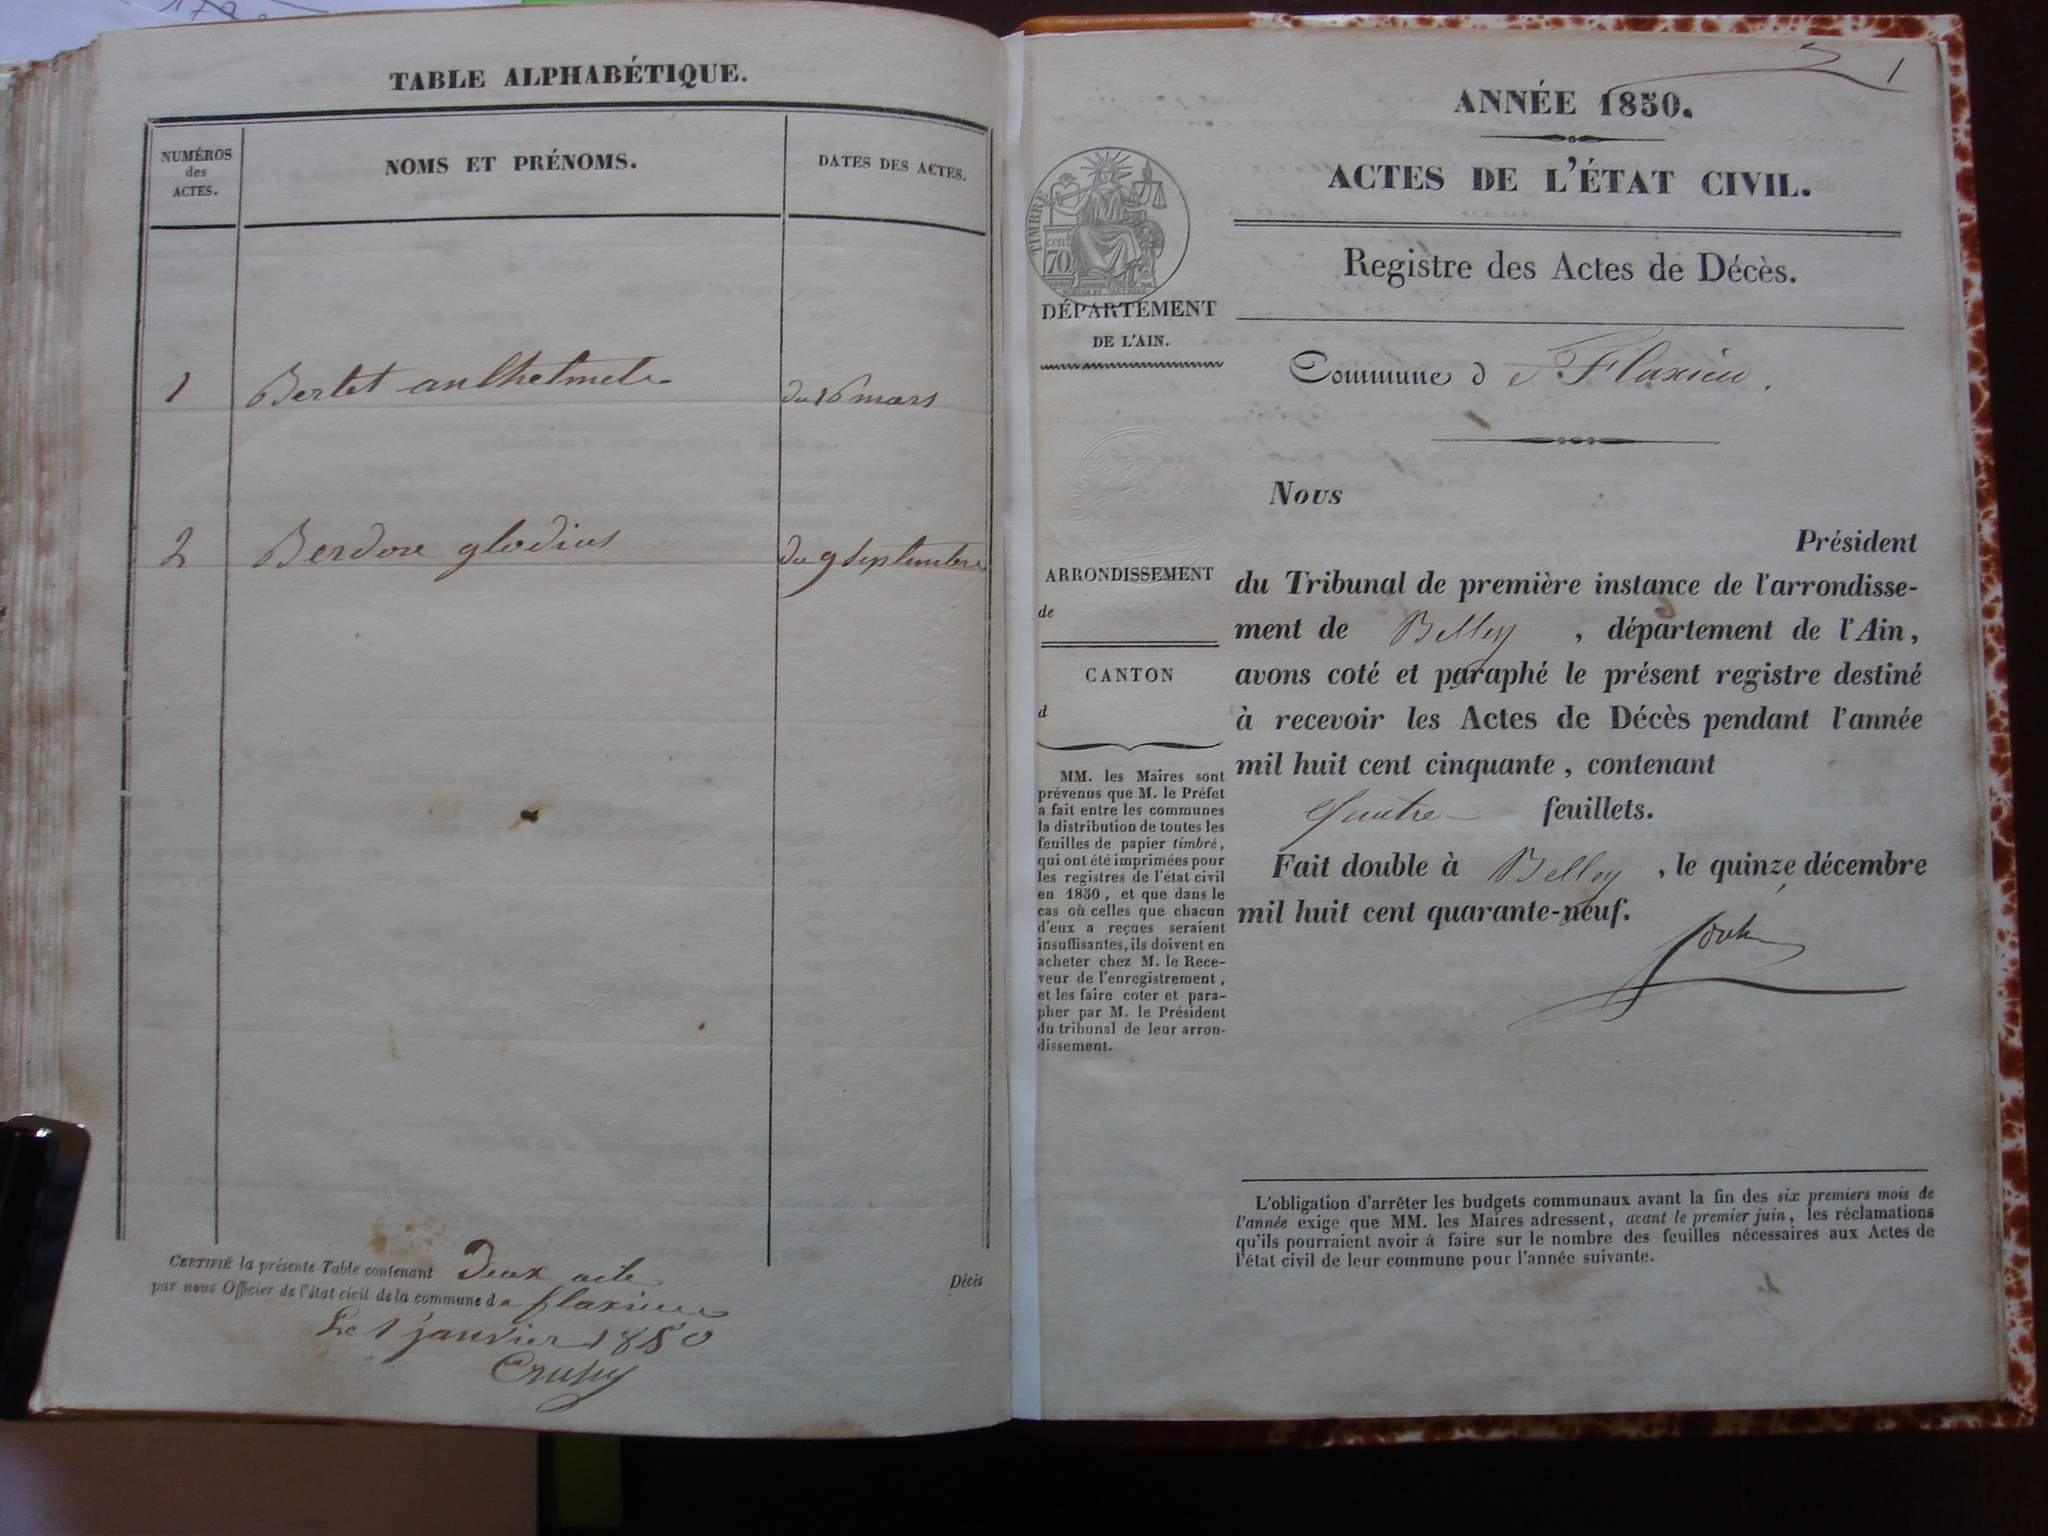 TABLE ALPHABÉTIQUE.
NUMÉROS
des
ACTES.
NOMS ET PRÉNOMS.
DATES DES ACTES.
1 Bertet anthelmete du 16 mars
2 Berdore glodius du 9 septembre
CERTIFIÉ la présente Table contenant Deux acte
Décès
par nous Officier de l'état civil de la commune de flaxieu
Le 1 janvier 1850
1
ANNÉE 1850.
ACTES DE L'ÉTAT CIVIL.
Registre des Actes de Décès.
TIMBRE
cent
70
DÉPARTEMENT
DE L'AIN.
Commune de Flaxieu.
ARRONDISSEMENT
de
CANTON
d
MM. les Maires sont
prévenus que M. le Préfet
a fait entre les communes
la distribution de toutes les
feuilles de papier timbré,
qui ont été imprimées pour
les registres de l'état civil
en 1850, et que dans le
cas où celles que chacun
d'eux a reçues seraient
insuffisantes, ils doivent en
acheter chez M. le Rece-
veur de l'enregistrement,
et les faire coter et para-
pher par M. le Président
du tribunal de leur arron-
dissement.
Nous
Président
du Tribunal de première instance de l'arrondisse-
ment de Belley, département de l'Ain,
avons coté et paraphé le présent registre destiné
à recevoir les Actes de Décès pendant l'année
mil huit cent cinquante, contenant
quatre feuillets.
Fait double à Belley, le quinze décembre
mil huit cent quarante-neuf.
L'obligation d'arrêter les budgets communaux avant la fin des six premiers mois de
l'année exige que MM. les Maires adressent, avant le premier juin, les réclamations
qu'ils pourraient avoir à faire sur le nombre des feuilles nécessaires aux Actes de
l'état civil de leur commune pour l'année suivante.